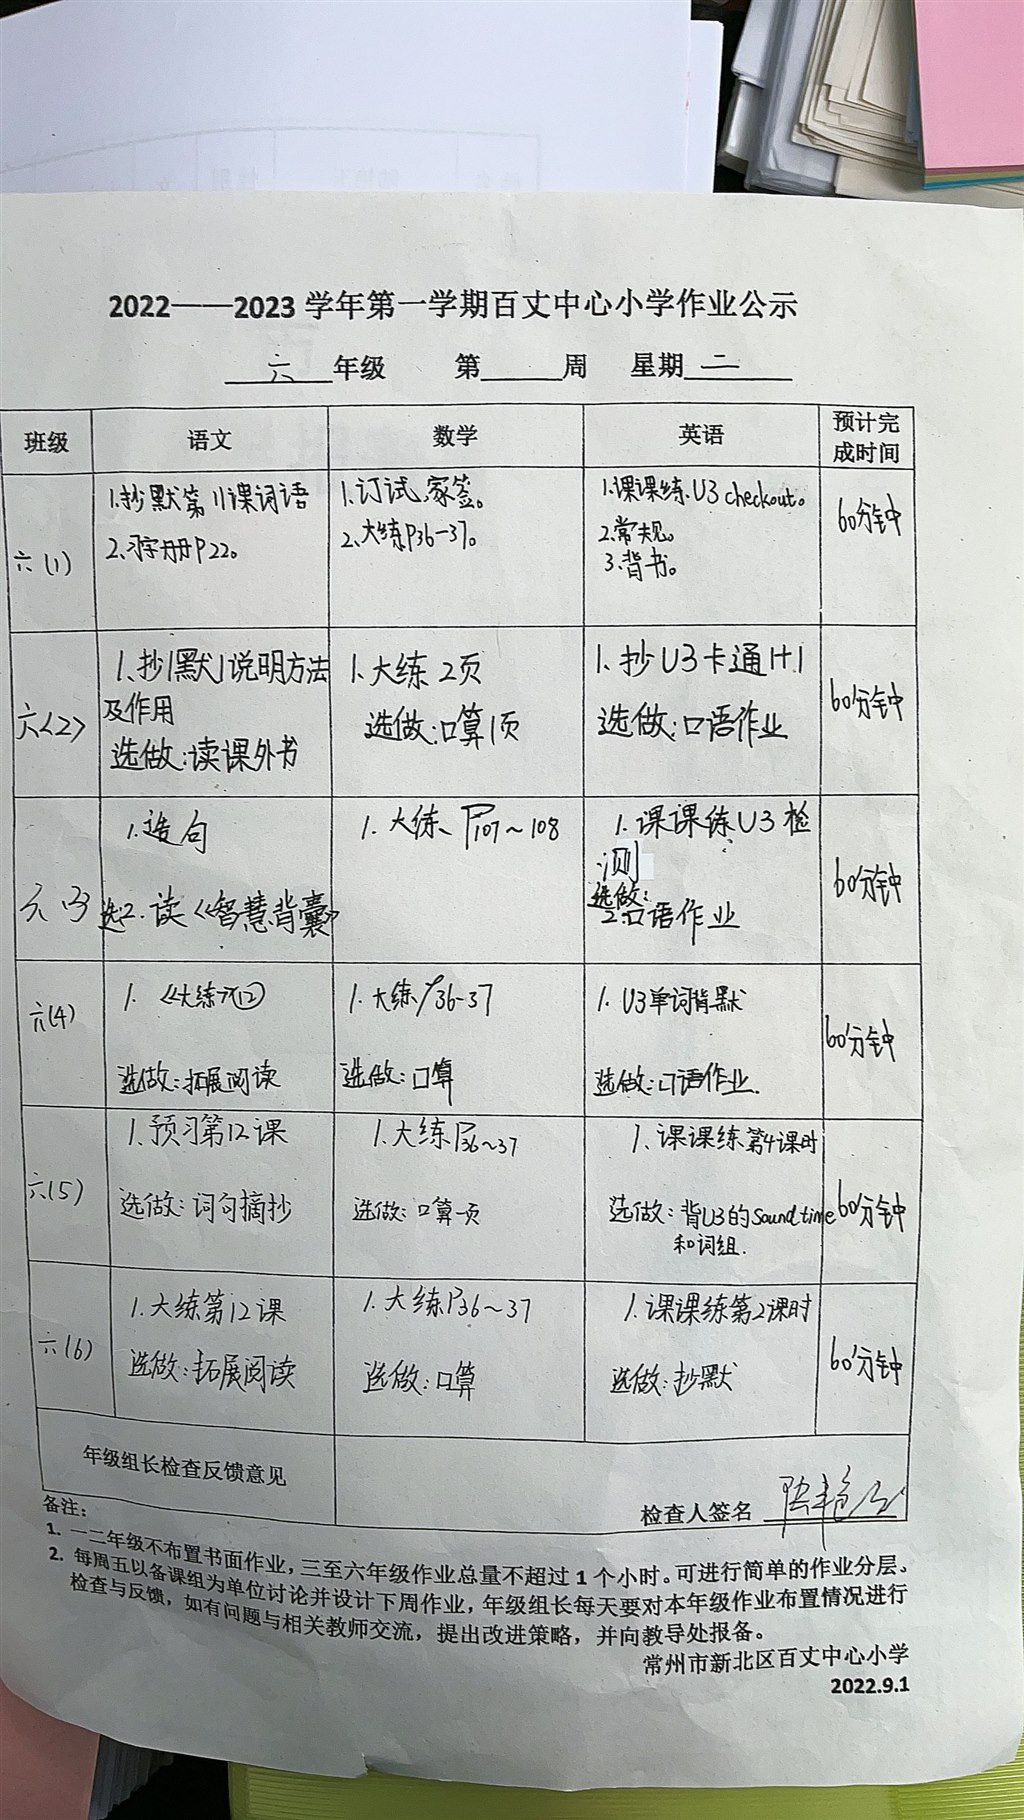 2022——2023 学年第一学期百丈中心小学作业公示
六 年级 第 周 星期 二
班级 语文 数学 英语 预计完成时间
六(1)
1.抄默第11课词语
2.习字册P22。
1.订试,家签。
2.大练P36-37。
1.课课练U3 checkout。
2.常规。
3.背书。
60分钟
六<2>
1.抄|默|说明方法
及作用
选做:读课外书
1.大练 2页
选做:口算1页
1.抄U3卡通1+1
选做:口语作业
60分钟
六(3)
1.造句
选2.读《智慧背囊》
1.大练、P107~108
1.课课练U3检
测
选做:
2.口语作业
60分钟
六(4)
1.《大练》⑫
选做:拓展阅读
1.大练P36-37
选做:口算
1.U3单词背默
选做:口语作业.
60分钟
六(5)
1.预习第12课
选做:词句摘抄
1.大练P36~37
选做:口算一页
1.课课练第4课时
选做:背U3的Sound time
和词组.
60分钟
六(6)
1.大练第12课
选做:拓展阅读
1.大练P36~37
选做:口算
1.课课练第2课时
选做:抄默
60分钟
年级组长检查反馈意见
检查人签名
备注:
1. 一二年级不布置书面作业,三至六年级作业总量不超过 1 个小时。可进行简单的作业分层。
2. 每周五以备课组为单位讨论并设计下周作业,年级组长每天要对本年级作业布置情况进行
检查与反馈,如有问题与相关教师交流,提出改进策略,并向教导处报备。
常州市新北区百丈中心小学
2022.9.1